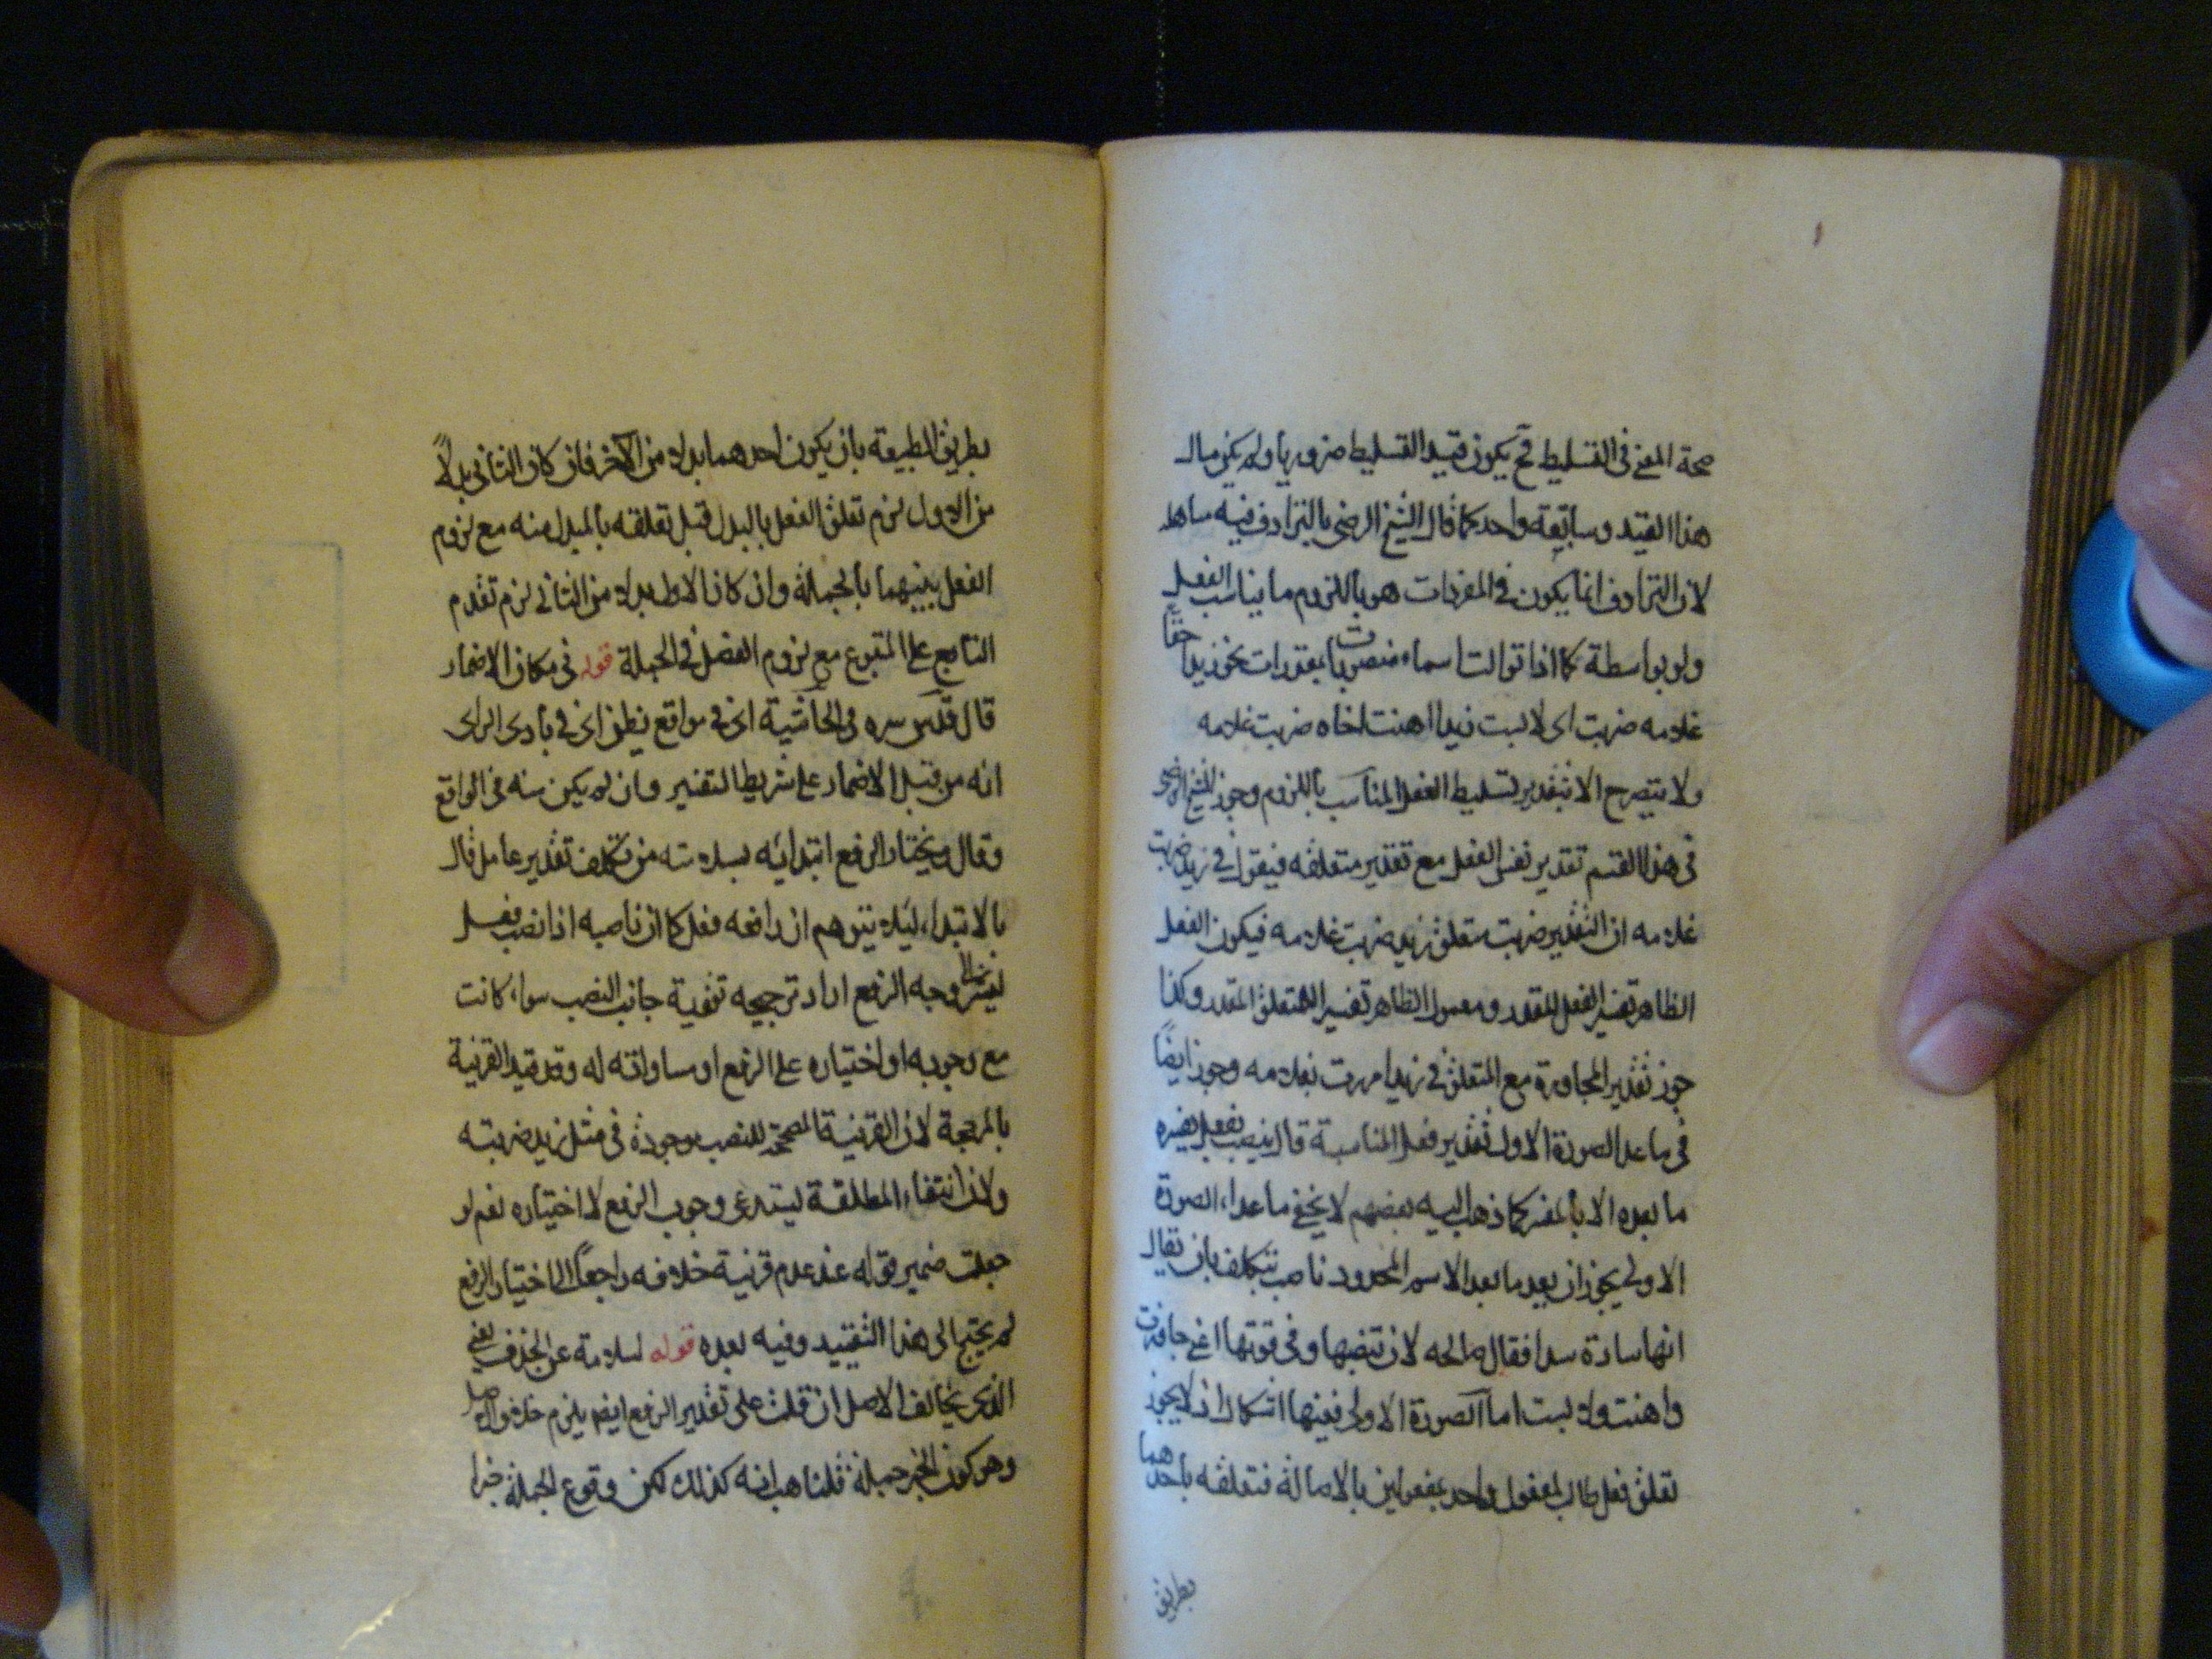 صحة المعنى فى التسليط فح يكون قيد التسليط ضروريا ولم يكن مالـ
هذا القيد وسابقه واحد كما قال الشيخ الرضى بالترادف فيه ساهل
لان الترادف انما يكون فى المفردات هو باللزوم ما يناسب الفعل
ولو بواسطة كما اذا توالت اسماء منصوبات بمقدرات نحو زيدا حقا
غلامه ضربت اى لابست زيدا اهنت اخاه ضربت غلامه
ولا يتصرح الا بتقدير تسليط الفعل المناسب باللزوم وجوز الشيخ الرضى
فى هذا القسم تقدير نفس الفعل مع تقدير متعلقه فيقول فى زيدا ضربت
غلامه ان التقدير ضربت متعلق زيد ضربت غلامه فيكون الفعل
الظاهر تفسير الفعل المقدر ومعمول الظاهر تفسير المتعلق المقدر وكذا
جوز تقدير المجاوزة مع المتعلق فى زيدا مررت بغلامه وجوز ايضا
فى ما عدا الصورة الاولى تقدير فعل المناسبة قال ينصب بفعل يفسره
ما بعده الا بالمفسر كما ذهب اليه بعضهم لا يخفى ما عداء الصورة
الاولى يجوز ان بعد ما بعد الاسم المحدود ناصب بتكلف بان يقال
انها سادة سدا فقال صالحه لان تنصبها وفى قوتها اعنى جاوزت
واهنت ولابست اما الصورة الاولى ففيها اشكال اذ لا يجوز
تعلق فعل طالب لمفعول واحد بمفعولين بالاصالة فتعلقه باحدهما
بطريق
بطريق الطبيعة بان يكون احدهما بدلا من الآخر فان كان الثانى بدلاً
من الاول لزم تعلق الفعل بالبدل قبل تعلقه بالمبدل منه مع لزوم
الفصل بينهما بالجملة وان كان الاول بدلا من الثانى لزم تقدم
التابع على المتبوع مع لزوم الفصل فى الجملة قوله فى مكان الاضمار
قال قدس سره فى الحاشية اى فى مواقع يظن اى فى بادى الراى
انه من قبيل الاضمار على شريطة التفسير وان لم يكن منه فى الواقع
وقال ويختار الرفع ابتدائه بسلامته من تكلف تقدير عامل قال
بالابتداء لئلا يتوهم ان رافعه فعل كما ان ناصبه اذا نصب فعل
وجه الرفع اراد ترجيحه تنفية جانب النصب سواء كانت
مع وجوبه او اختياره على الرفع او مساواته له وقد قيد القرنية
بالمرجحة لان القرنية المصححة للنصب موجودة فى مثل زيد ضربته
ولان انتفاء المطلقة ليستدعى وجوب الرفع لا اختياره نعم لو
جعلت ضمير قوله عند عدم قرنية خلافه راجعاً الى اختيار الرفع
لم يحتج الى هذا التقييد وفيه بعده قوله لسلامة عن الحذف يعنى
الذى يخالف الاصل ان قلت على تقدير الرفع ايضا يلزم خلاف الاصل
وهو كون الخبر جملة قلنا هب انه كذلك لكن وقوع الجملة خبرا